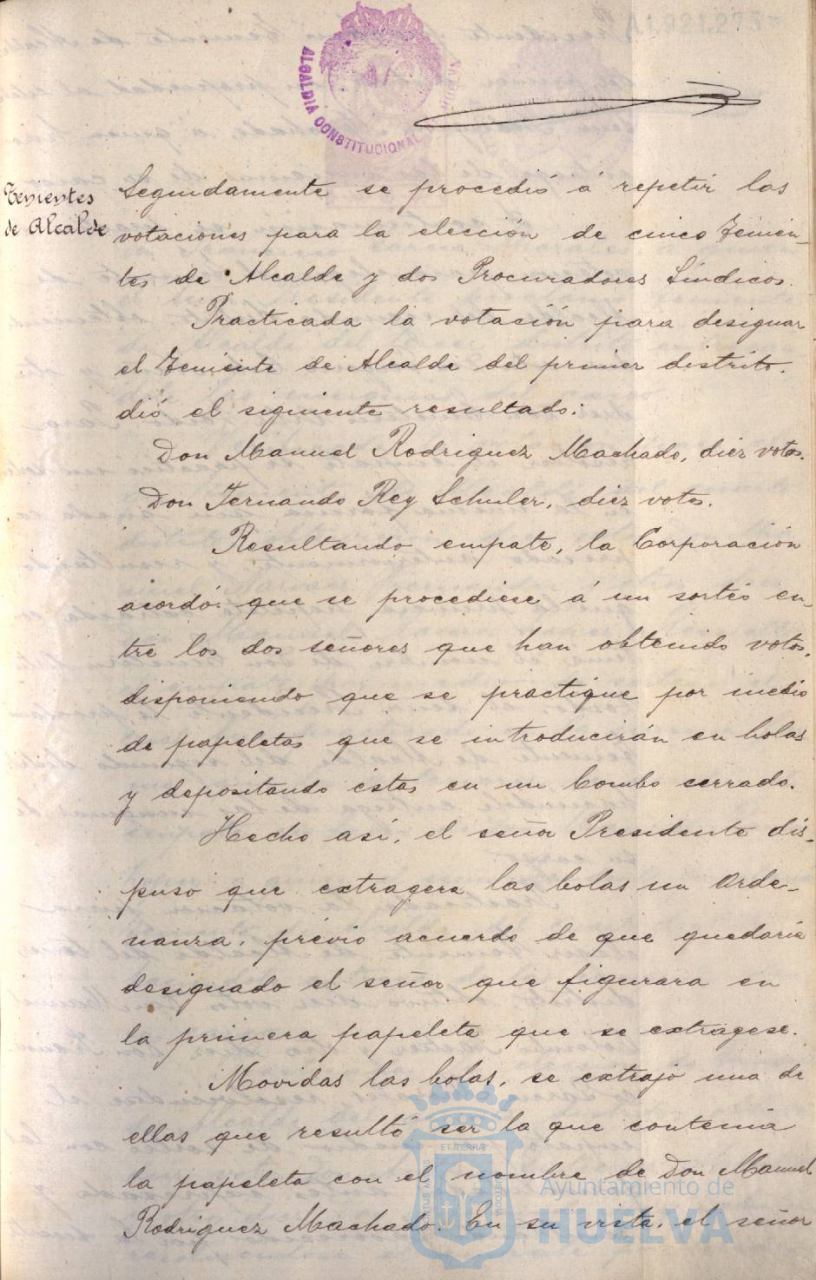 A1.921.273
ALCALDIA CONSTITUCIONAL
HUELVA
Tenientes
de Alcalde
Seguidamente se procedió á repetir las
votaciones para la elección de cinco Tenien-
tes de Alcalde y dos Procuradores Síndicos.
Practicada la votación para designar
el Teniente de Alcalde del primer distrito,
dió el siguiente resultado:
Don Manuel Rodriguez Machado, diez votos.
Don Fernando Rey Schuler, diez votos.
Resultando empate, la Corporación
acordó que se procediese á un sorteo en-
tre los dos señores que han obtenido votos,
disponiendo que se practique por medio
de papeletas que se introducirán en bolas
y depositando éstas en un bombo cerrado.
Hecho así, el señor Presidente dis-
puso que extragera las bolas un Orde-
nanza, prévio acuerdo de que quedaria
designado el señor que figurara en
la primera papeleta que se extragese.
Movidas las bolas, se extrajo una de
ellas que resultó ser la que contenia
la papeleta con el nombre de Don Manuel
Rodriguez Machado. En su vista, el señor
Ayuntamiento de
HUELVA